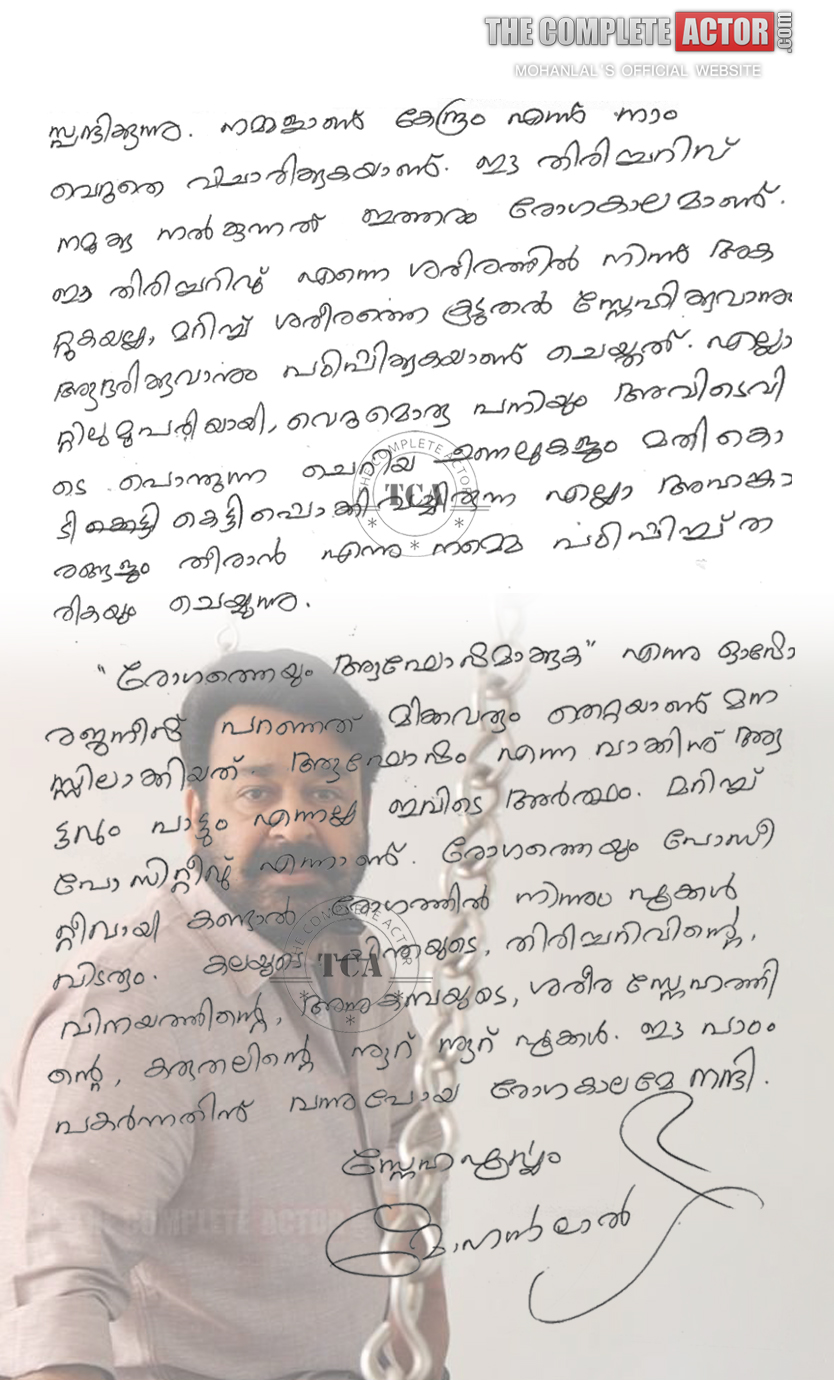 THE COMPLETE ACTOR.com
MOHANLAL'S OFFICIAL WEBSITE
സ്പന്ദിക്കുന്നു. നമ്മളാണ് കേന്ദ്രം എന്ന് നാം
വെറുതെ വിചാരിക്കുകയാണ്. ഈ തിരിച്ചറിവ്
നമുക്കു നൽകുന്നത് ഇത്തരം രോഗകാലമാണ്.
ഈ തിരിച്ചറിവ് എന്നെ ശരീരത്തിൽ നിന്ന് അക
റ്റുകയല്ല, മറിച്ച് ശരീരത്തെ കൂടുതൽ സ്നേഹിക്കുവാനും
ആദരിക്കുവാനും പഠിപ്പിക്കുകയാണ് ചെയ്തത്. എല്ലാ
റ്റിലുമുപരിയായി, വെറുമൊരു പനിയും അവിടെവി
ടെ പൊന്തുന്ന ചെറിയ ഉണലുകളും മതി കൊ
ടിക്കെട്ടി കെട്ടിപ്പൊക്കി വച്ചിരുന്ന എല്ലാ അഹങ്കാ
രങ്ങളും തീരാൻ എന്നു നമ്മെ പഠിപ്പിച്ച് ത
രികയും ചെയ്യുന്നു.
"രോഗത്തെയും ആഘോഷമാക്കുക" എന്നു ഓഷോ
രജ്നീഷ് പറഞ്ഞത് മിക്കവരും തെറ്റയാണ് മന
സ്സിലാക്കിയത് ആഘോഷം എന്ന വാക്കിന് ആ
ട്ടവും പാട്ടും എന്നല്ല ഇവിടെ അർത്ഥം. മറിച്ച്
പോസിറ്റീവ് എന്നാണ്. രോഗത്തെയും പോസി
റ്റീവായി കണ്ടാൽ രോഗത്തിൽ നിന്നും പൂക്കൾ
വിടരും. കലയുടെ, ചിന്തയുടെ, തിരിച്ചറിവിന്റെ,
വിനയത്തിന്റെ, അനുകമ്പയുടെ, ശരീര സ്നേഹത്തി
ന്റെ, കരുതലിന്റെ നൂറ് നൂറ് പൂക്കൾ. ഈ പാഠം
പകർന്നതിന് വന്നുപോയ രോഗകാലമേ നന്ദി.
സ്നേഹപൂർവ്വം
മോഹൻലാൽ
THE COMPLETE ACTOR
TCA
THE COMPLETE ACTOR
TCA
THE COMPLETE ACTOR